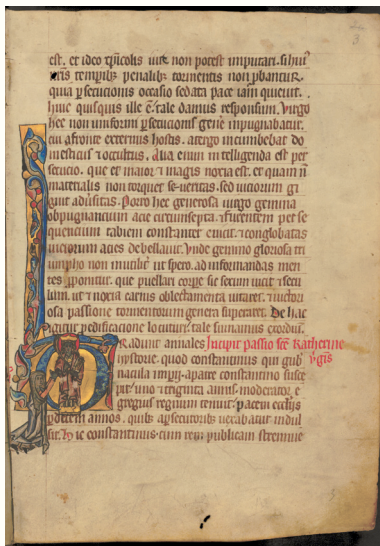 3
est. et ideo xp̄icolis vite non potest imputari. si huiꝰ
q̄ia ꝑsecucionis occasio sedata pace iam quieuit.
huic quisquis ille ē. tale damus responsum. Virgo
hec non uniformi ꝑsecucionis gene impugnabatur.
cui a fronte externus hostis. a tergo incumbebat do
mesticus ⁊ occultus. Alia enim intelligenda est per
secucio. que et maior ⁊ magis noxia est. et quam n̄
materialis non torquet seueritas. sed uiciorum gi
gnit aduersitas. Porro hec generosa uirgo gemina
obpugnancium acie circumsepta. ⁊ furentem per se
quencium rabiem constanter euicit. ⁊ conglobatas
uiciorum acies debellauit. Vnde gemino gloriosa tri
umpho non inutilit̉ ut spero. ad informandas men
tes ꝓponitur. que puellari corpꝛe sic secum uicit ⁊ secu
lum. ut ⁊ noxia carnis oblectamenta uitaret. ⁊ uictori
osa passione tormentorum genera superaret. De hac
igitur
tale sumamus exordium.
Tradunt annales Incipit passio sc̄e Katherine
hystorie. quod constantinus qui gub̉ v̉gīs
nacula imperii a patre constantino susce
pit. uno ⁊ triginta annis moderator e
gregius regnum tenuit. pacem eccl̄iis
annos. quibꝰ a ꝑsecutoribꝰ uexabatur indul
sit. Hic constantinus cum rem publicam strennue